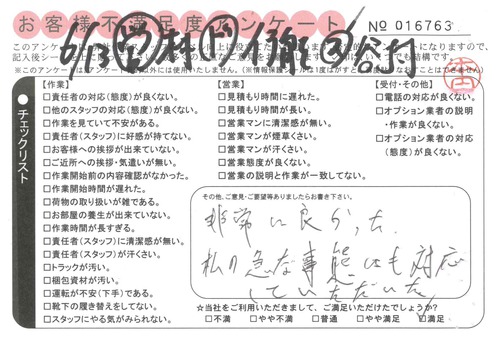 お客様不満足度アンケート
No 016763
チェックリスト
【作業】
□責任者の対応(態度)が良くない。
□他のスタッフの対応(態度)が良くない。
□作業を見ていて不安がある。
□責任者(スタッフ)に好感が持てない。
□お客様への挨拶が出来ていない。
□ご近所への挨拶・気遣いが無い。
□作業開始前の内容確認がなかった。
□作業開始時間が遅れた。
□荷物の取り扱いが雑である。
□お部屋の養生が出来ていない。
□作業時間が長すぎる。
□責任者(スタッフ)に清潔感が無い。
□責任者(スタッフ)が汗さい。
□トラックが汚い。
□梱包資材が汚い。
□運転が不安(下手)である。
□靴下の履き替えをしてない。
□スタッフにやる気がみられない。
【営業】
□見積もり時間に遅れた。
□見積もり時間が長い。
□営業マンに清潔感が無い。
□営業マンが煙草くさい。
□営業マンが汗くさい。
□営業態度が良くない。
□営業の説明と作業が一致してない。
【受付・その他】
□電話の対応が良くない。
□オプション業者の説明
・作業が良くない。
□オプション業者の対応
(態度)が良くない。
その他、ご意見・ご要望等ありましたらお書き下さい。
非常に良かった
私の急な事態にも対応
していただいた
☆当社をご利用いただきまして、ご満足いただけたでしょうか?
□不満 □やや不満 □普通 □やや満足 ☑満足